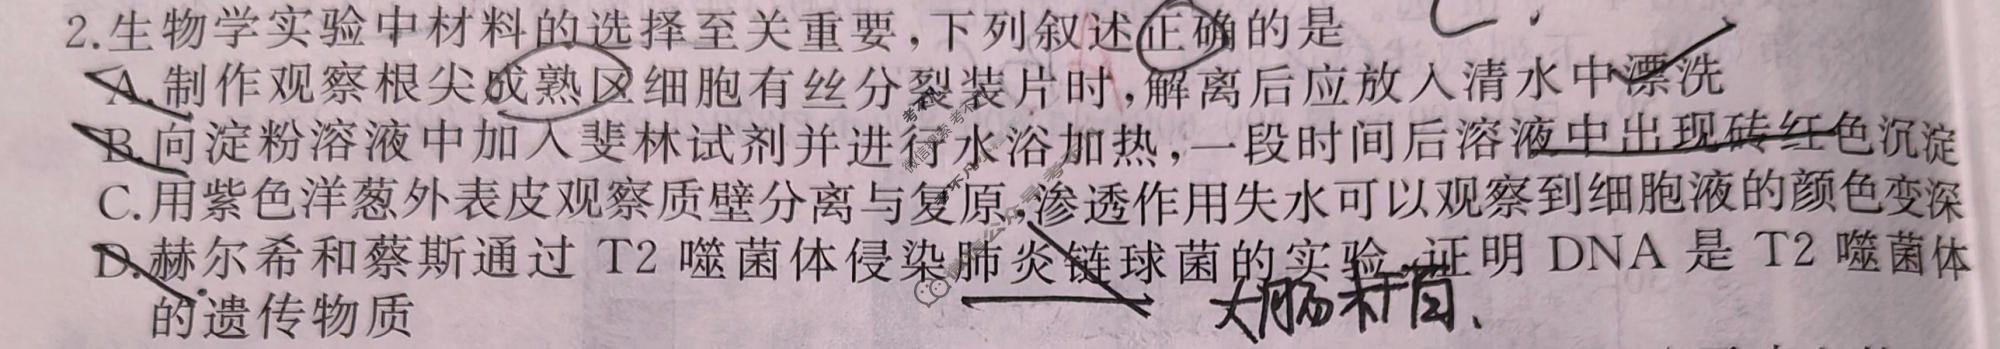 2.生物学实验中材料的选择至关重要,下列叙述正确的是
A.制作观察根尖成熟区细胞有丝分裂装片时,解离后应放入清水中漂洗
B.向淀粉溶液中加入斐林试剂并进行水浴加热,一段时间后溶液中出现砖红色沉淀
C.用紫色洋葱外表皮观察质壁分离与复原,渗透作用失水可以观察到细胞液的颜色变深
D.赫尔希和蔡斯通过 T2 噬菌体侵染肺炎链球菌的实验,证明 DNA 是 T2 噬菌体
的遗传物质
大肠杆菌、